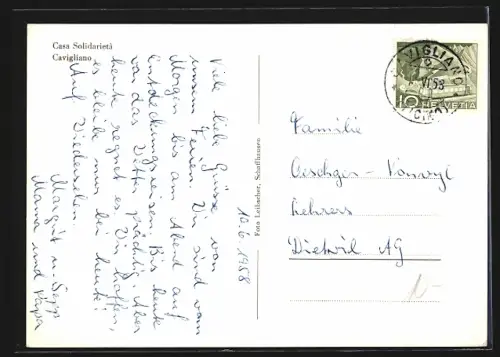 Casa Solidarietà
Cavigliano
10.6.1958
Viele liebe Grüsse von
unsern Ferien. Wir sind vom
Morgen bis am Abend auf
Entdeckungsreisen. Bis heute
war das Wetter prächtig. Aber
heute regnet es. Wir hoffen,
es bleibe nur bei heute!
Auf Wiedersehn.
Margrit u. Sepp
Mama und Papa
Foto Leibacher, Schaffhausen
CAVIGLIANO
VI.58
(TICINO)
10 HELVETIA
Familie
Oeschger-Vonwyl
Lehrers
Dietwil AG
1.-